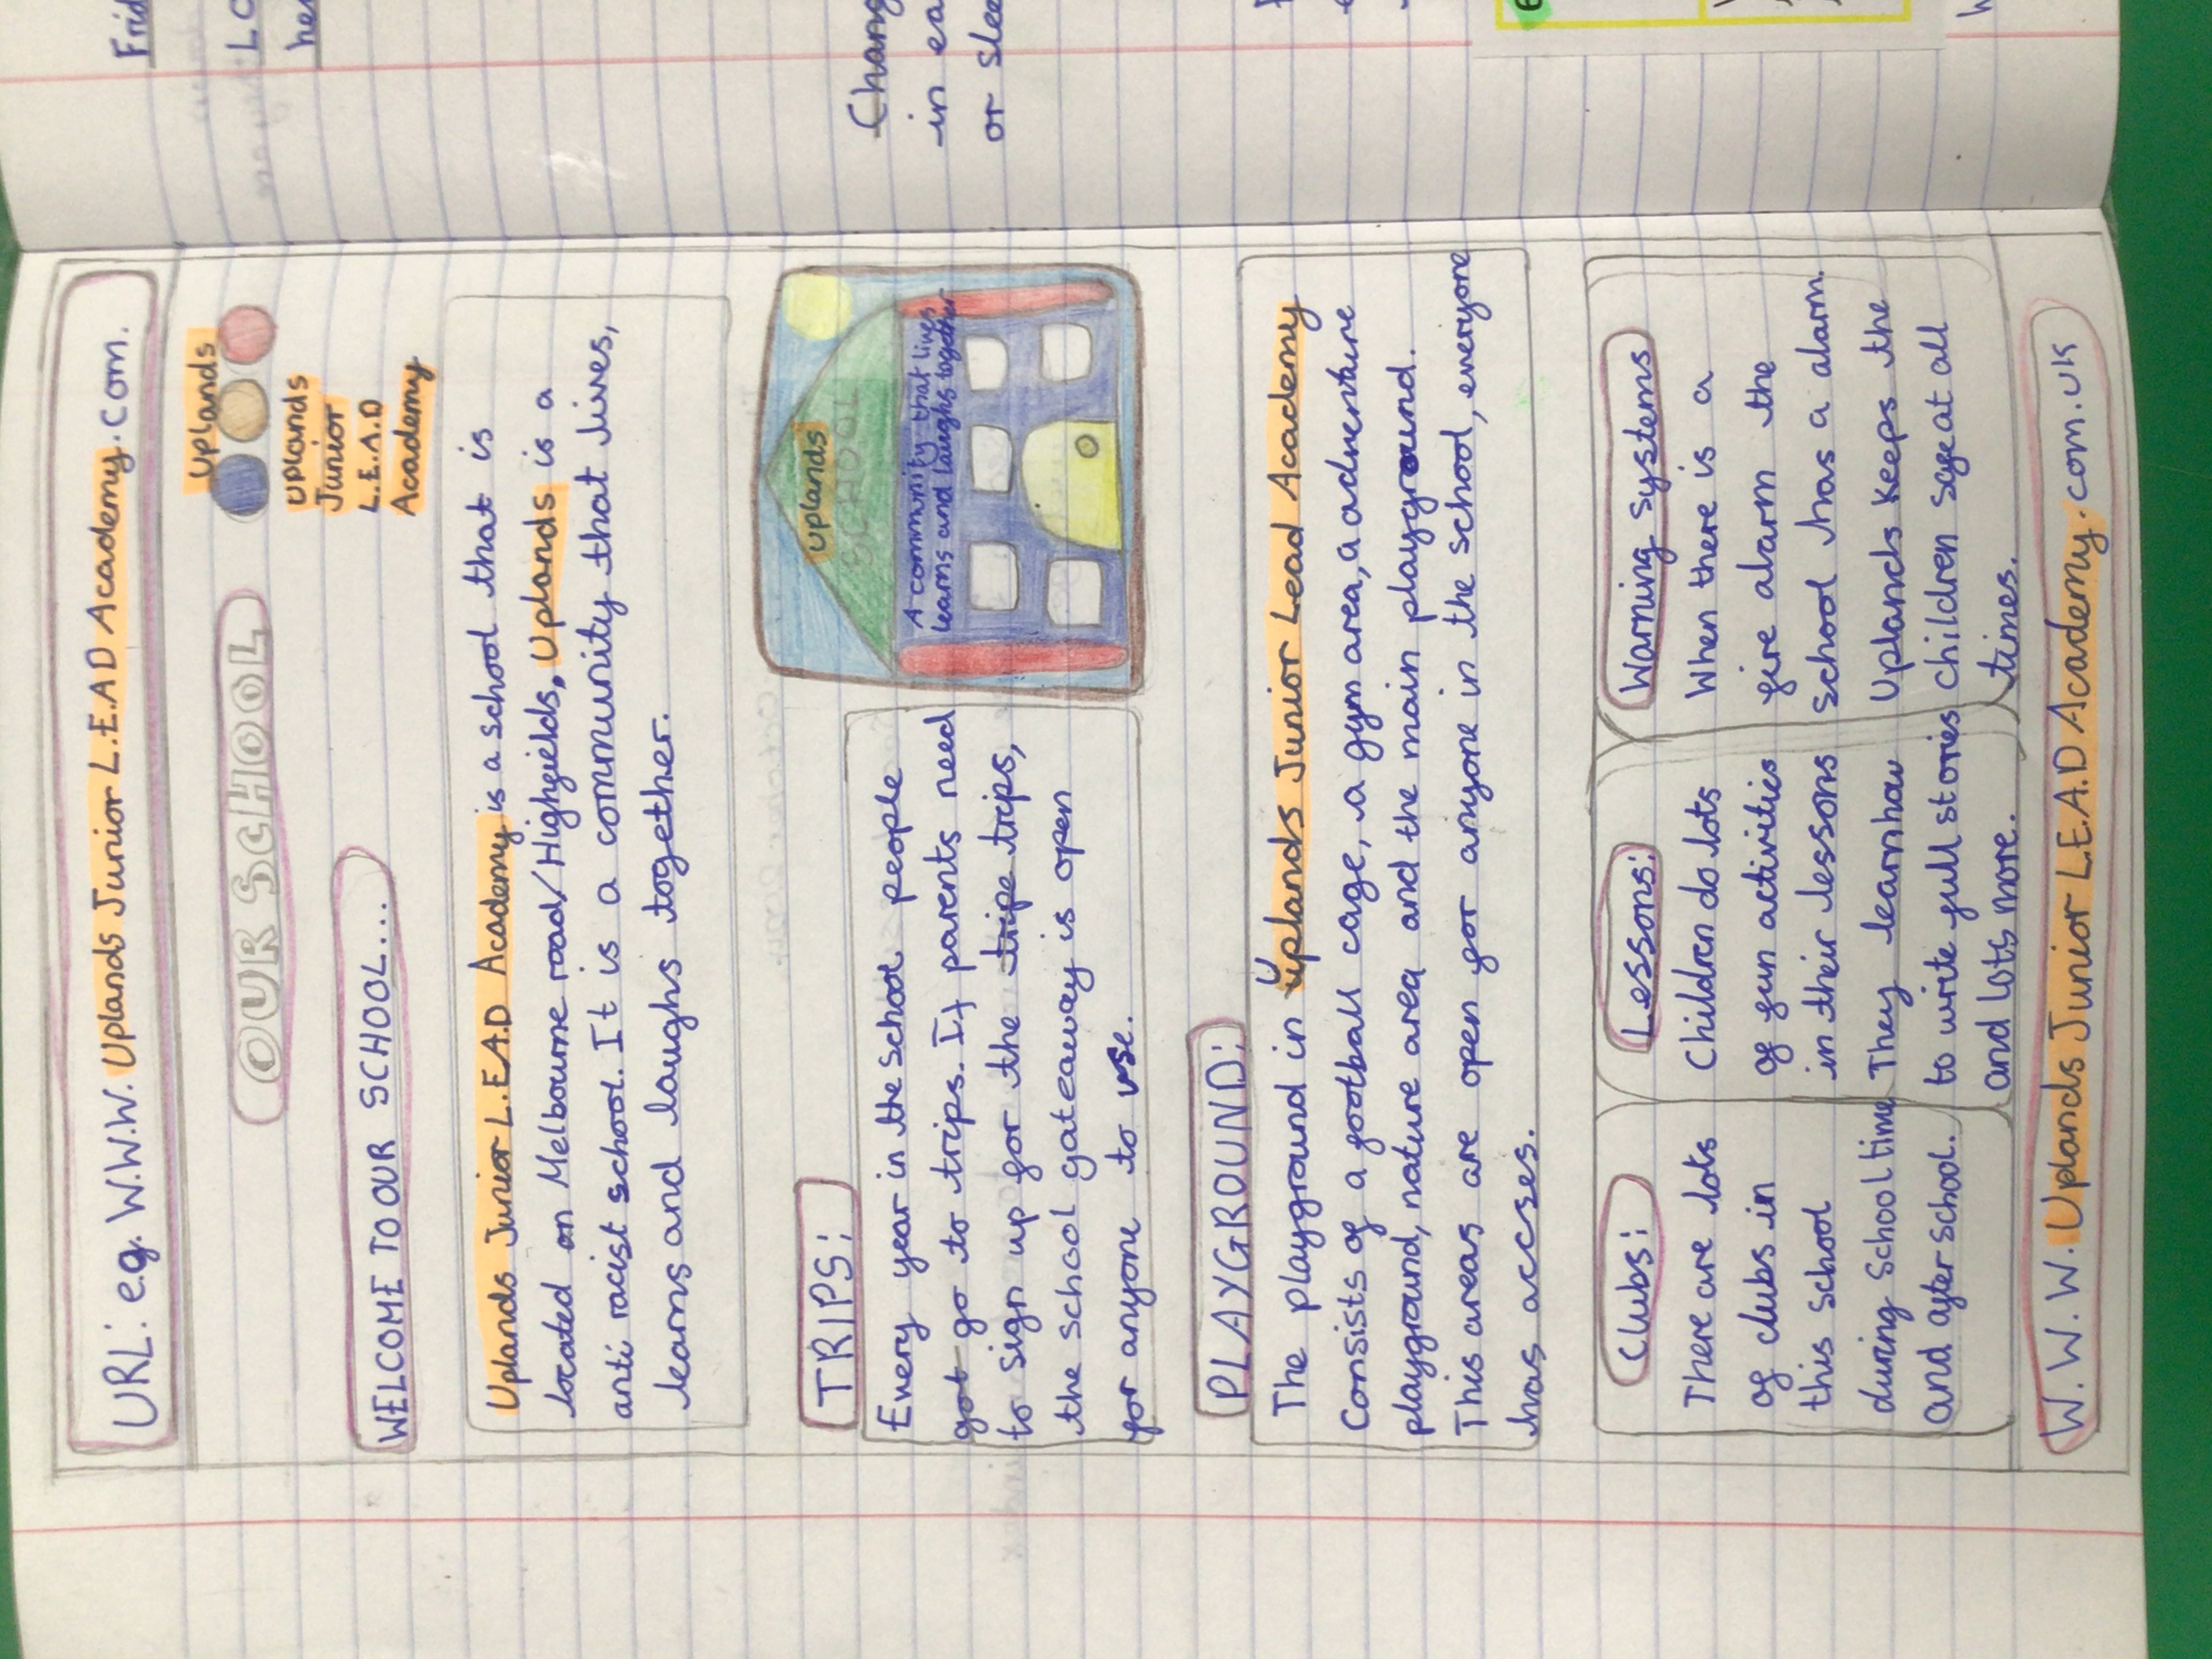 URL: eg. W.W.W. Uplands Junior L.E.A.D Academy.com.
OUR SCHOOL
Uplands
Uplands
Junior
L.E.A.D
Academy
WELCOME TO OUR SCHOOL...
Uplands Junior L.E.A.D Academy is a school that is
located on Melbourne road/Highfields, Uplands is a
anti racist school. It is a community that lives,
learns and laughs together.
TRIPS:
Every year in the school people
got go to trips. If parents need
to sign up for the tripe trips,
the school gateaway is open
for anyone to use.
Uplands
SCHOOL
A community that lives
learns and laughs together
PLAYGROUND:
The playground in Uplands Junior Lead Academy
Consists of a football cage, a gym area, a adventure
playground, nature area and the main playground.
This areas are open for anyone in the school, everyone
has accses.
Clubs:
There are lots
of clubs in
this school
during school time
and after school.
Lessons:
Children do lots
of fun activities
in their lessons
They learn how
to write full stories
and lots more.
Warning systems
When there is a
fire alarm the
school has a alarm.
Uplands keeps the
children safe at all
times.
W.W.W. Uplands Junior L.E.A.D Academy.com.uk
Chang
in ea
or slee